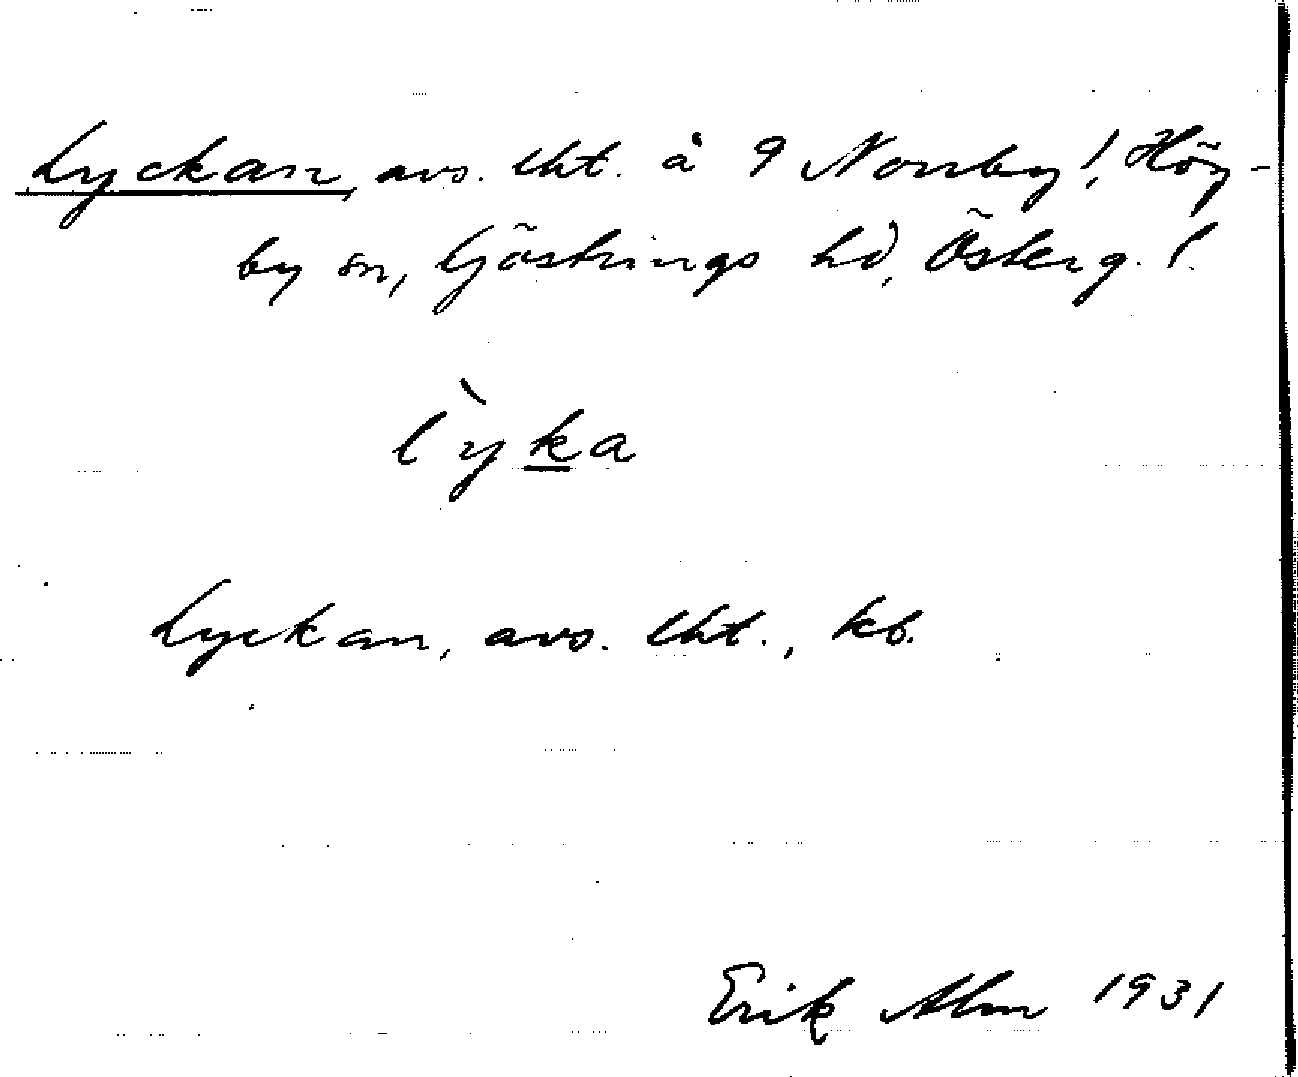 Lyckan, avs. lht. å 9 Norrby!, Hög-
by sn, Göstrings hd, Österg. l.
lỳka
Lyckan, avs. lht., kb.
Erik Alm 1931